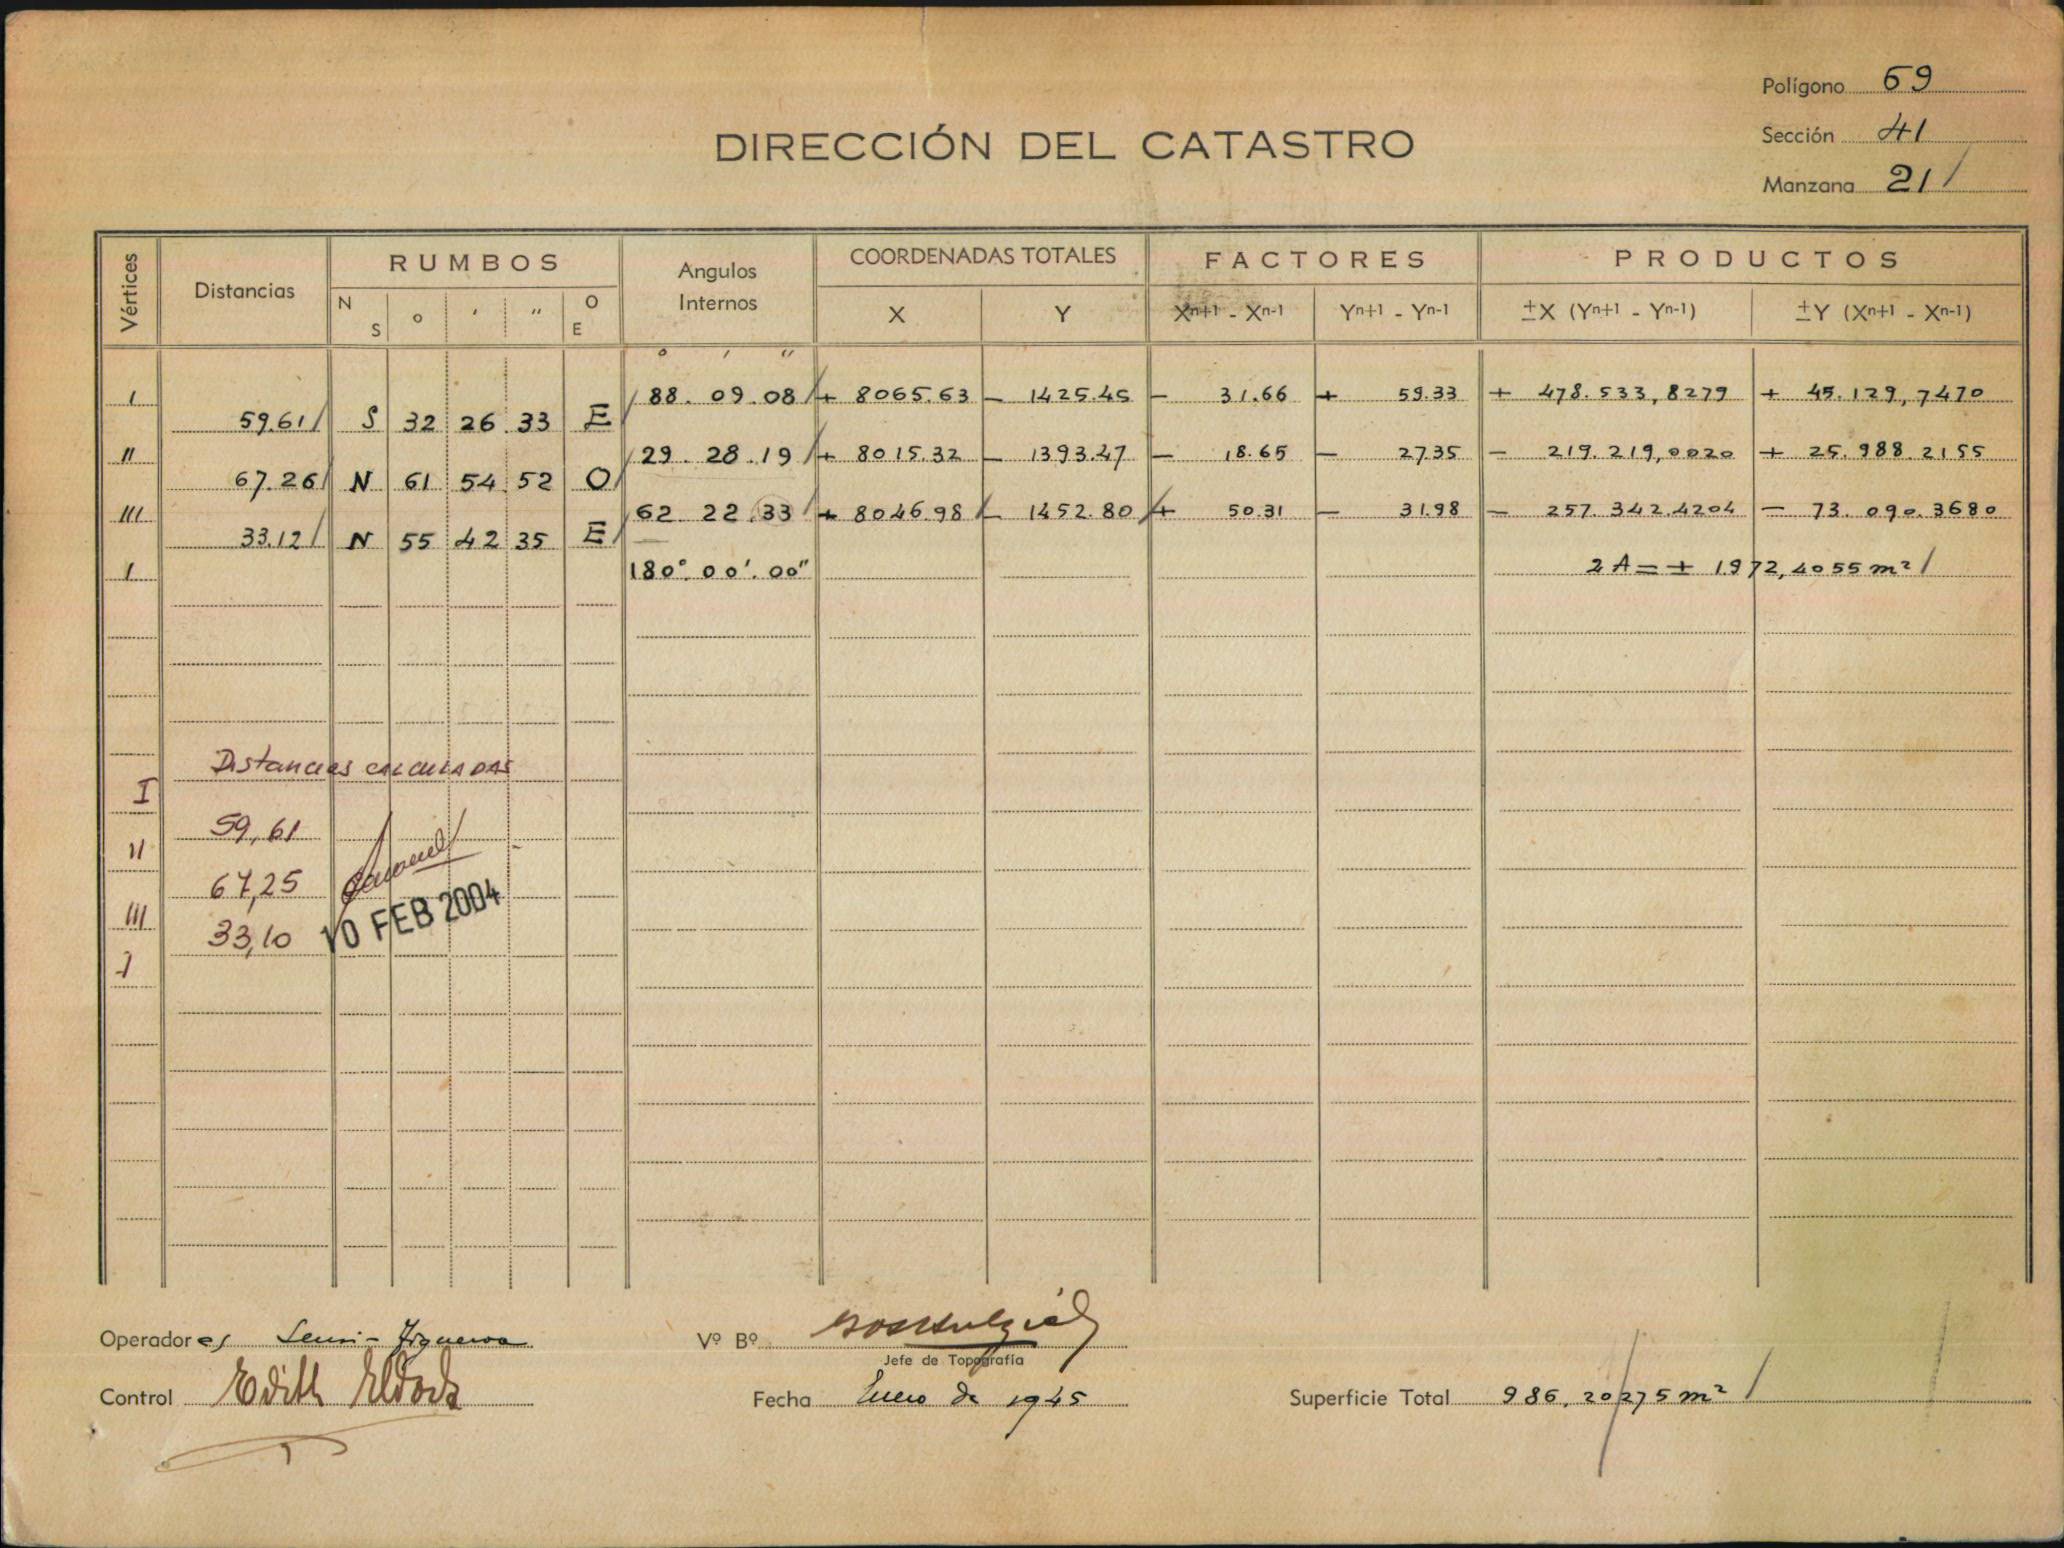 Polígono 69
Sección 41
Manzana 21
DIRECCIÓN DEL CATASTRO
Vértices Distancias RUMBOS Angulos Internos COORDENADAS TOTALES FACTORES PRODUCTOS
N S ° ′ ″ O E X Y Xn+1 - Xn-1 Yn+1 - Yn-1 ±X (Yn+1 - Yn-1) ±Y (Xn+1 - Xn-1)
° ′ ″
I 88. 09. 08 + 8065.63 - 1425.45 - 31.66 + 59.33 + 478.533,8279 + 45.129,7470
59.61 S 32 26 33 E
II 29. 28. 19 + 8015.32 - 1393.47 - 18.65 - 27.35 - 219.219,0020 + 25.988.2155
67.26 N 61 54 52 O
III 62 22. 33 + 8046.98 - 1452.80 + 50.31 - 31.98 - 257.342.4204 - 73.090.3680
33.12 N 55 42 35 E
I 180°. 00'. 00" 2A = + 1972,4055 m²
Distancias CALCULADAS
I
59,61
II
67,25
III
33,10 10 FEB 2004
I
Operadores Figueroa Vº Bº
Jefe de Topografía
Control Edith Fecha Enero de 1945 Superficie Total 986,20275 m²